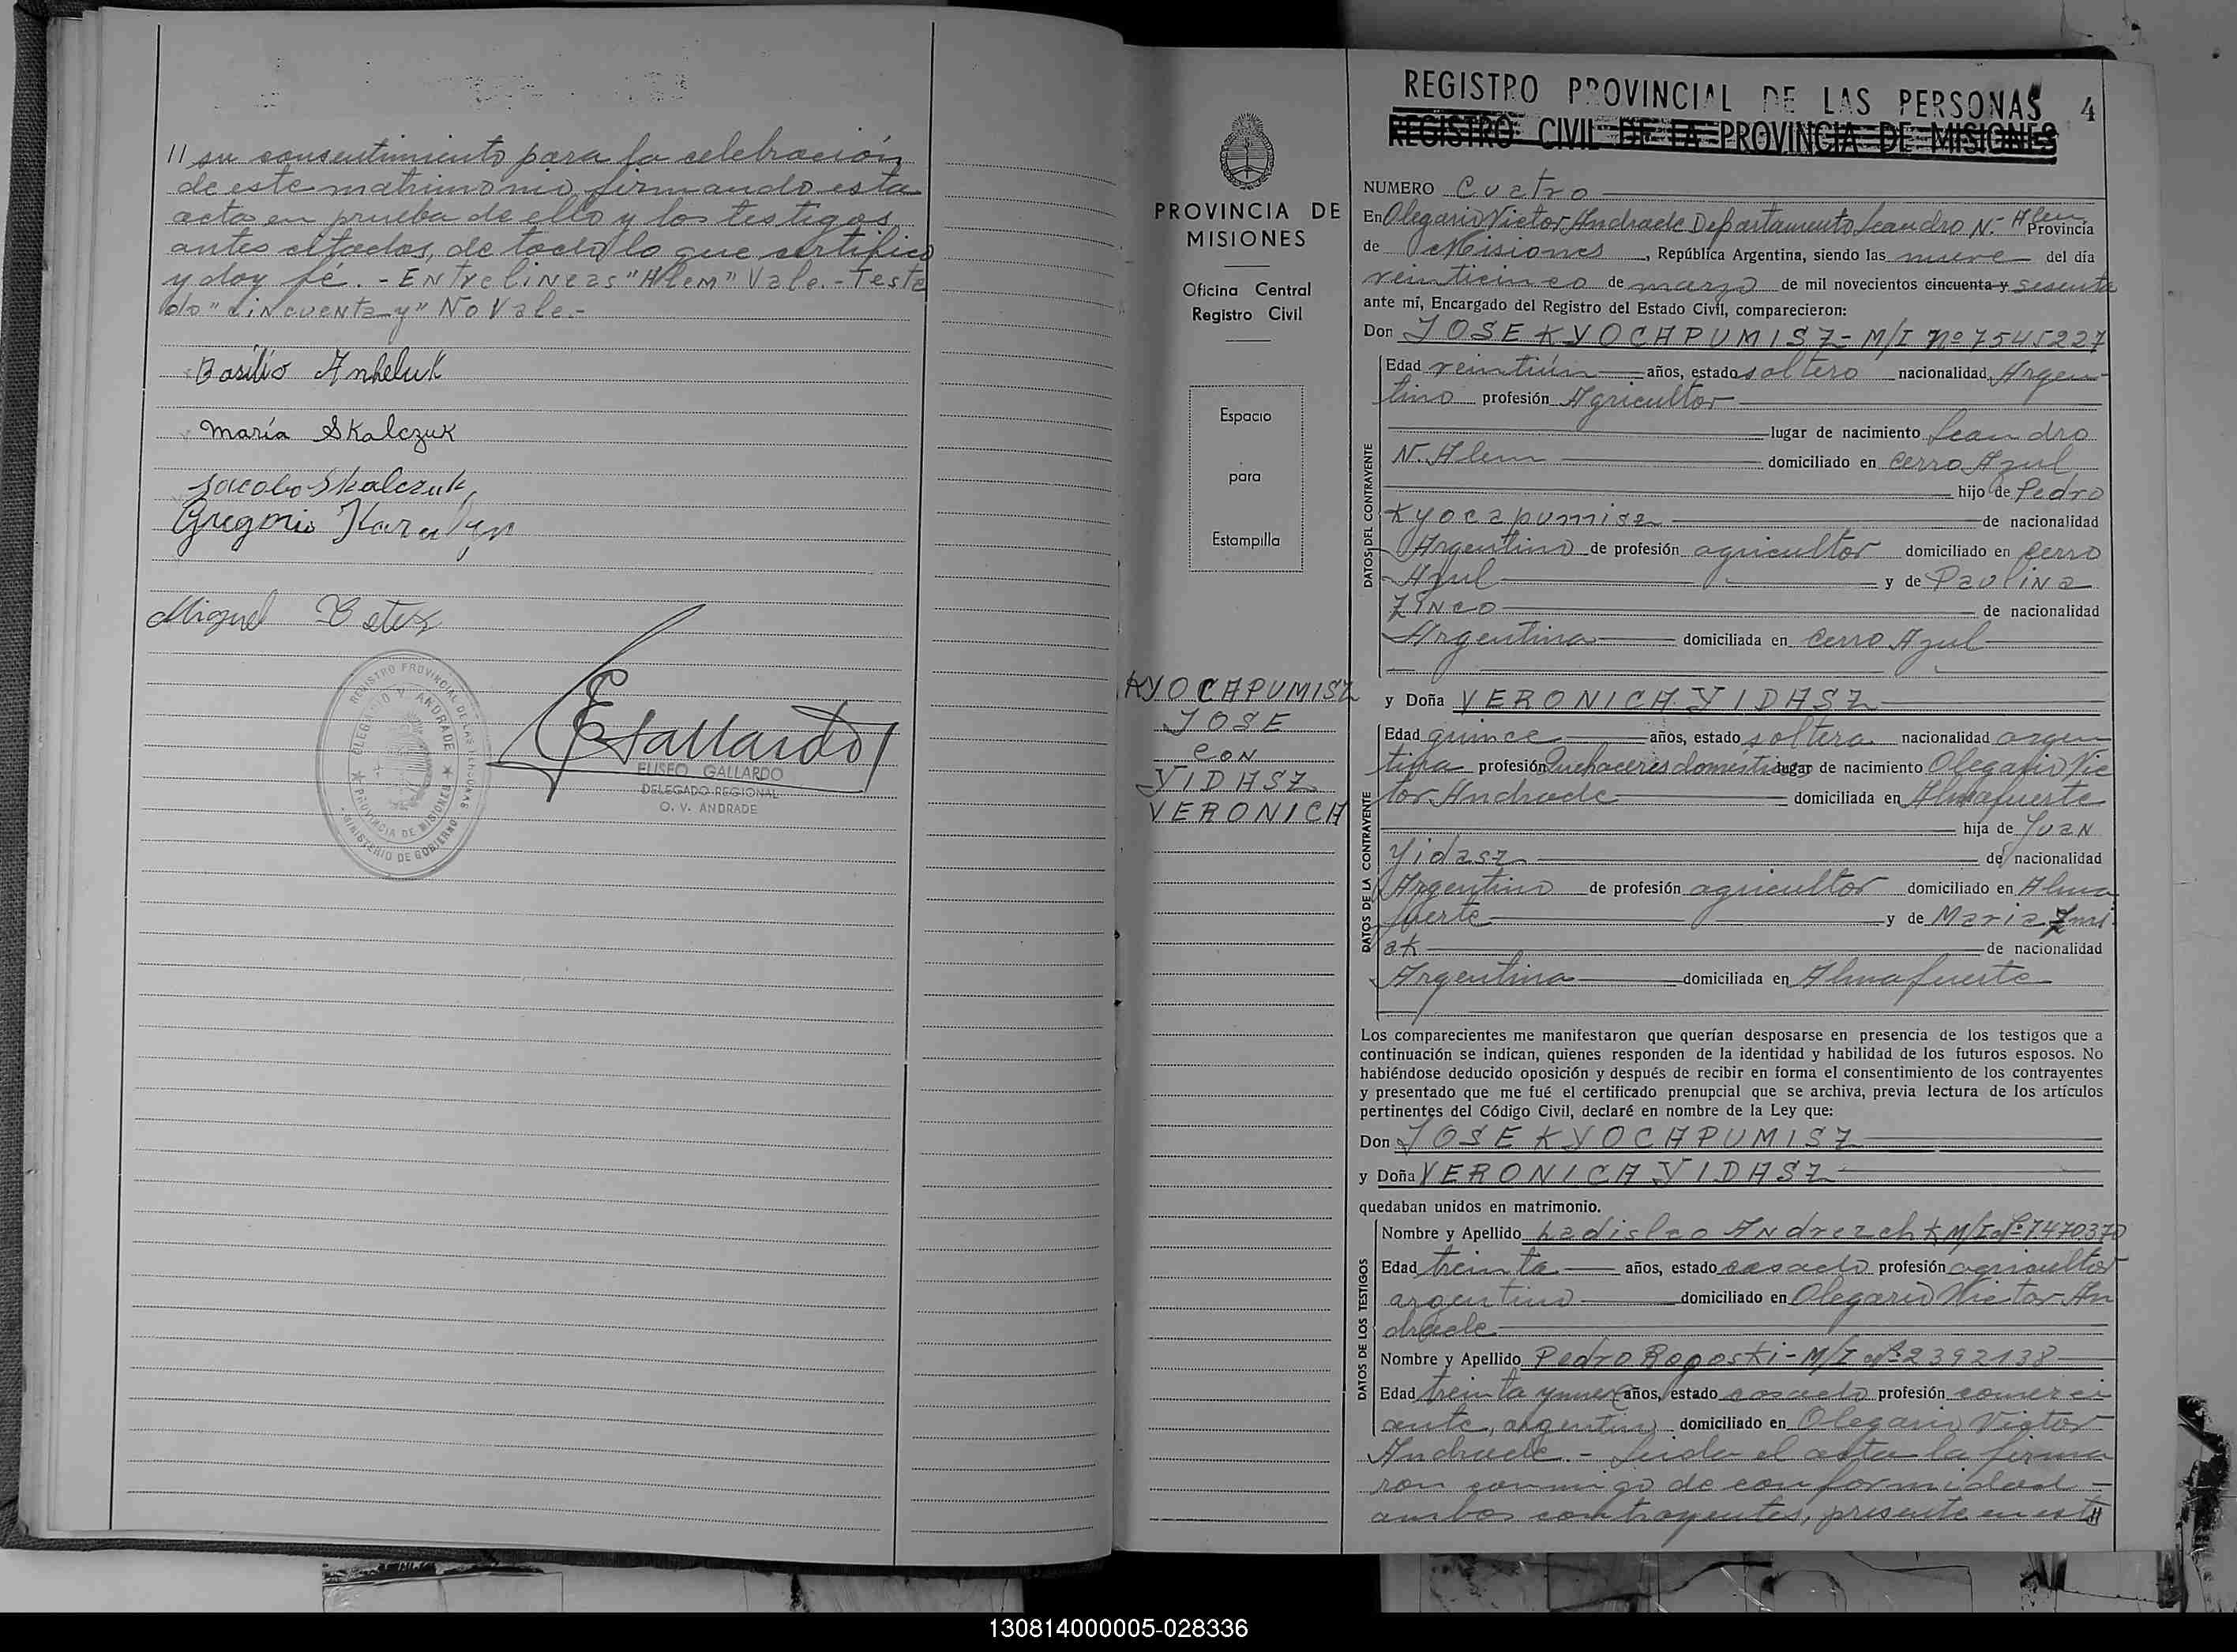 // su consentimiento para la celebración
de este matrimonio, firmando esta
acta en prueba de ello y los testigos
antes citados, de todo lo que certifico
y doy fé. - Entrelineas "Alem" Vale. - Testa
do "cincuenta y" No Vale. -
Basilio Anheluk
María Skalczuk
Jacobo Skalczuk
Gregorio
Miguel
REGISTRO PROVINCIAL DE LAS PERSONAS
OLEGARIO V. ANDRADE
PROVINCIA DE MISIONES
MINISTERIO DE GOBIERNO
EGallardo
ELISEO GALLARDO
DELEGADO REGIONAL
O. V. ANDRADE
PROVINCIA DE
MISIONES
Oficina Central
Registro Civil
Espacio
para
Estampilla
KYOCAPUMISZ
JOSE
CON
YIDASZ
VERONICA
REGISTRO PROVINCIAL DE LAS PERSONAS 4
REGISTRO CIVIL DE LA PROVINCIA DE MISIONES
NUMERO Cuatro
En Olegario Victor Andrade Departamento Leandro N. Alem, Provincia
de Misiones, República Argentina, siendo las nueve del día
veinticinco de marzo de mil novecientos cincuenta y sesenta
ante mí, Encargado del Registro del Estado Civil, comparecieron:
Don JOSE KYOCAPUMISZ - M/I Nº 7545227
DATOS DEL CONTRAYENTE
Edad veintiún años, estado soltero nacionalidad Argen-
tino profesión Agricultor
lugar de nacimiento Leandro
N. Alem domiciliado en Cerro Azul
hijo de Pedro
Kyocapumisz de nacionalidad
Argentino de profesión agricultor domiciliado en Cerro
Azul y de Paulina
Zinco de nacionalidad
Argentina domiciliada en Cerro Azul
y Doña VERONICA YIDASZ
DATOS DE LA CONTRAYENTE
Edad quince años, estado soltera nacionalidad argen
tina profesión Quehaceres domésticos lugar de nacimiento Olegario Vic
tor Andrade domiciliada en Almafuerte
hija de Juan
Yidasz de nacionalidad
Argentino de profesión agricultor domiciliado en Alma
fuerte y de Maria Zmi
ak de nacionalidad
Argentina domiciliada en Almafuerte
Los comparecientes me manifestaron que querían desposarse en presencia de los testigos que a
continuación se indican, quienes responden de la identidad y habilidad de los futuros esposos. No
habiéndose deducido oposición y después de recibir en forma el consentimiento de los contrayentes
y presentado que me fué el certificado prenupcial que se archiva, previa lectura de los artículos
pertinentes del Código Civil, declaré en nombre de la Ley que:
Don JOSE KYOCAPUMISZ
y Doña VERONICA YIDASZ
quedaban unidos en matrimonio.
DATOS DE LOS TESTIGOS
Nombre y Apellido Ladislao Andrezchk M/I Nº 7470370
Edad treinta años, estado casado profesión agricultor
argentino domiciliado en Olegario Victor An
drade
Nombre y Apellido Pedro Rogoski - M/I Nº 2392138
Edad treinta y nueve años, estado casado profesión comerci
ante, argentino domiciliado en Olegario Victor
Andrade. - Leida el acta la firma
ron conmigo de conformidad
ambos contrayentes, presente en est//
130814000005-028336